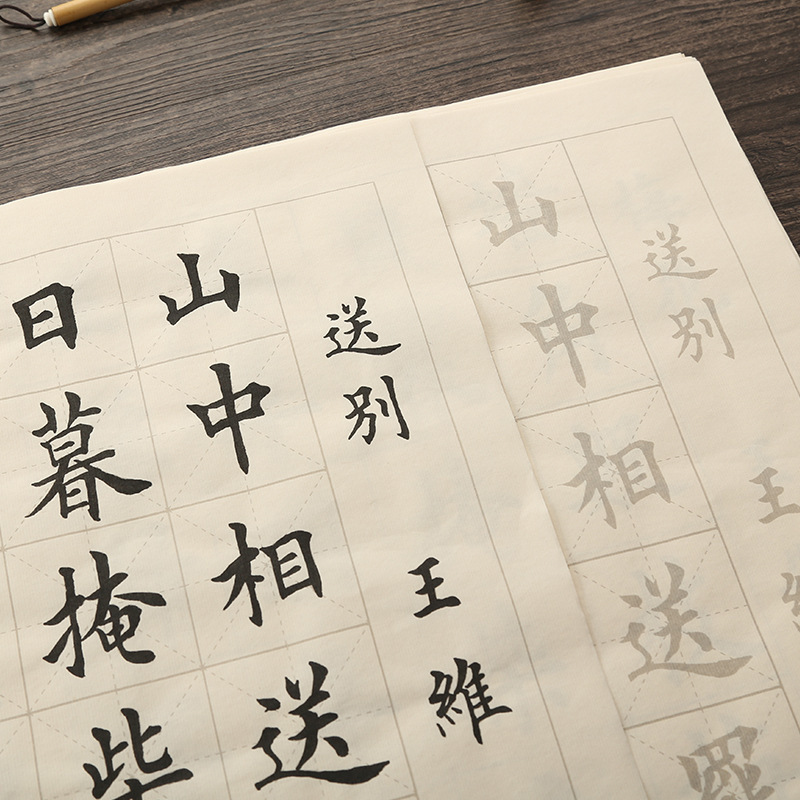 送别 王
山中相送罷
送别 王維
山中相送
日暮掩柴